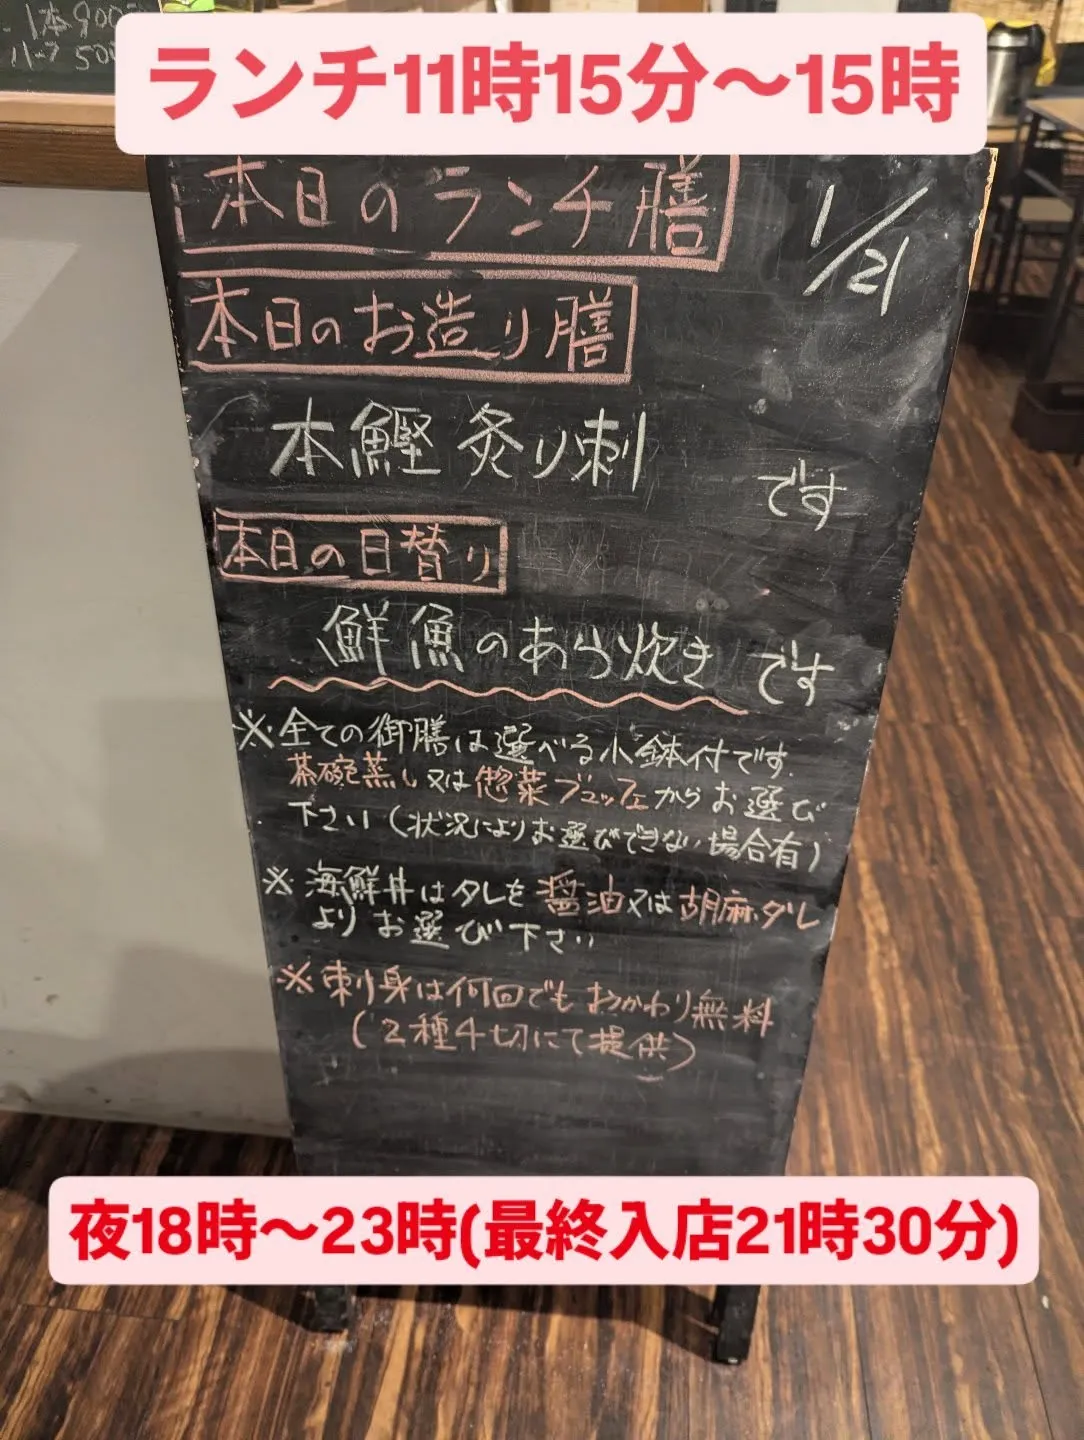 1本900
ハーフ500
ランチ11時15分～15時
本日のランチ膳
1/21
本日のお造り膳
本鰹 炙り刺
です
本日の日替り
鮮魚のあら炊き です
※全ての御膳は選べる小鉢付です.
茶碗蒸し又は惣菜ブュッフェからお選び
下さい(状況によりお選びできない場合有)
※海鮮丼はタレを醤油又は胡麻ダレ
よりお選び下さい
※刺身は何回でもおかわり無料
(2種4切にて提供)
夜18時～23時(最終入店21時30分)